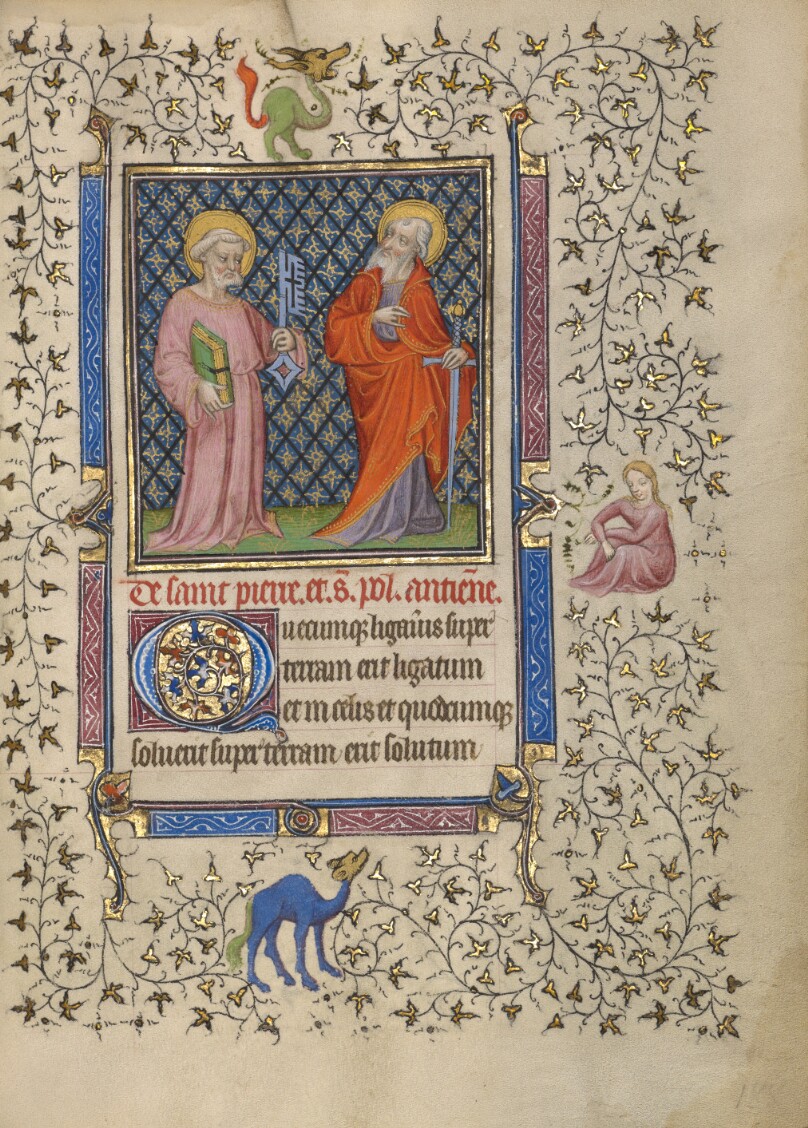 De saint pierre. et. s̄. pol. antiēne.
Quecumq; ligav̄is super
terram erit ligatum
et in celis et quodcumq;
solverit super terram erit solutum